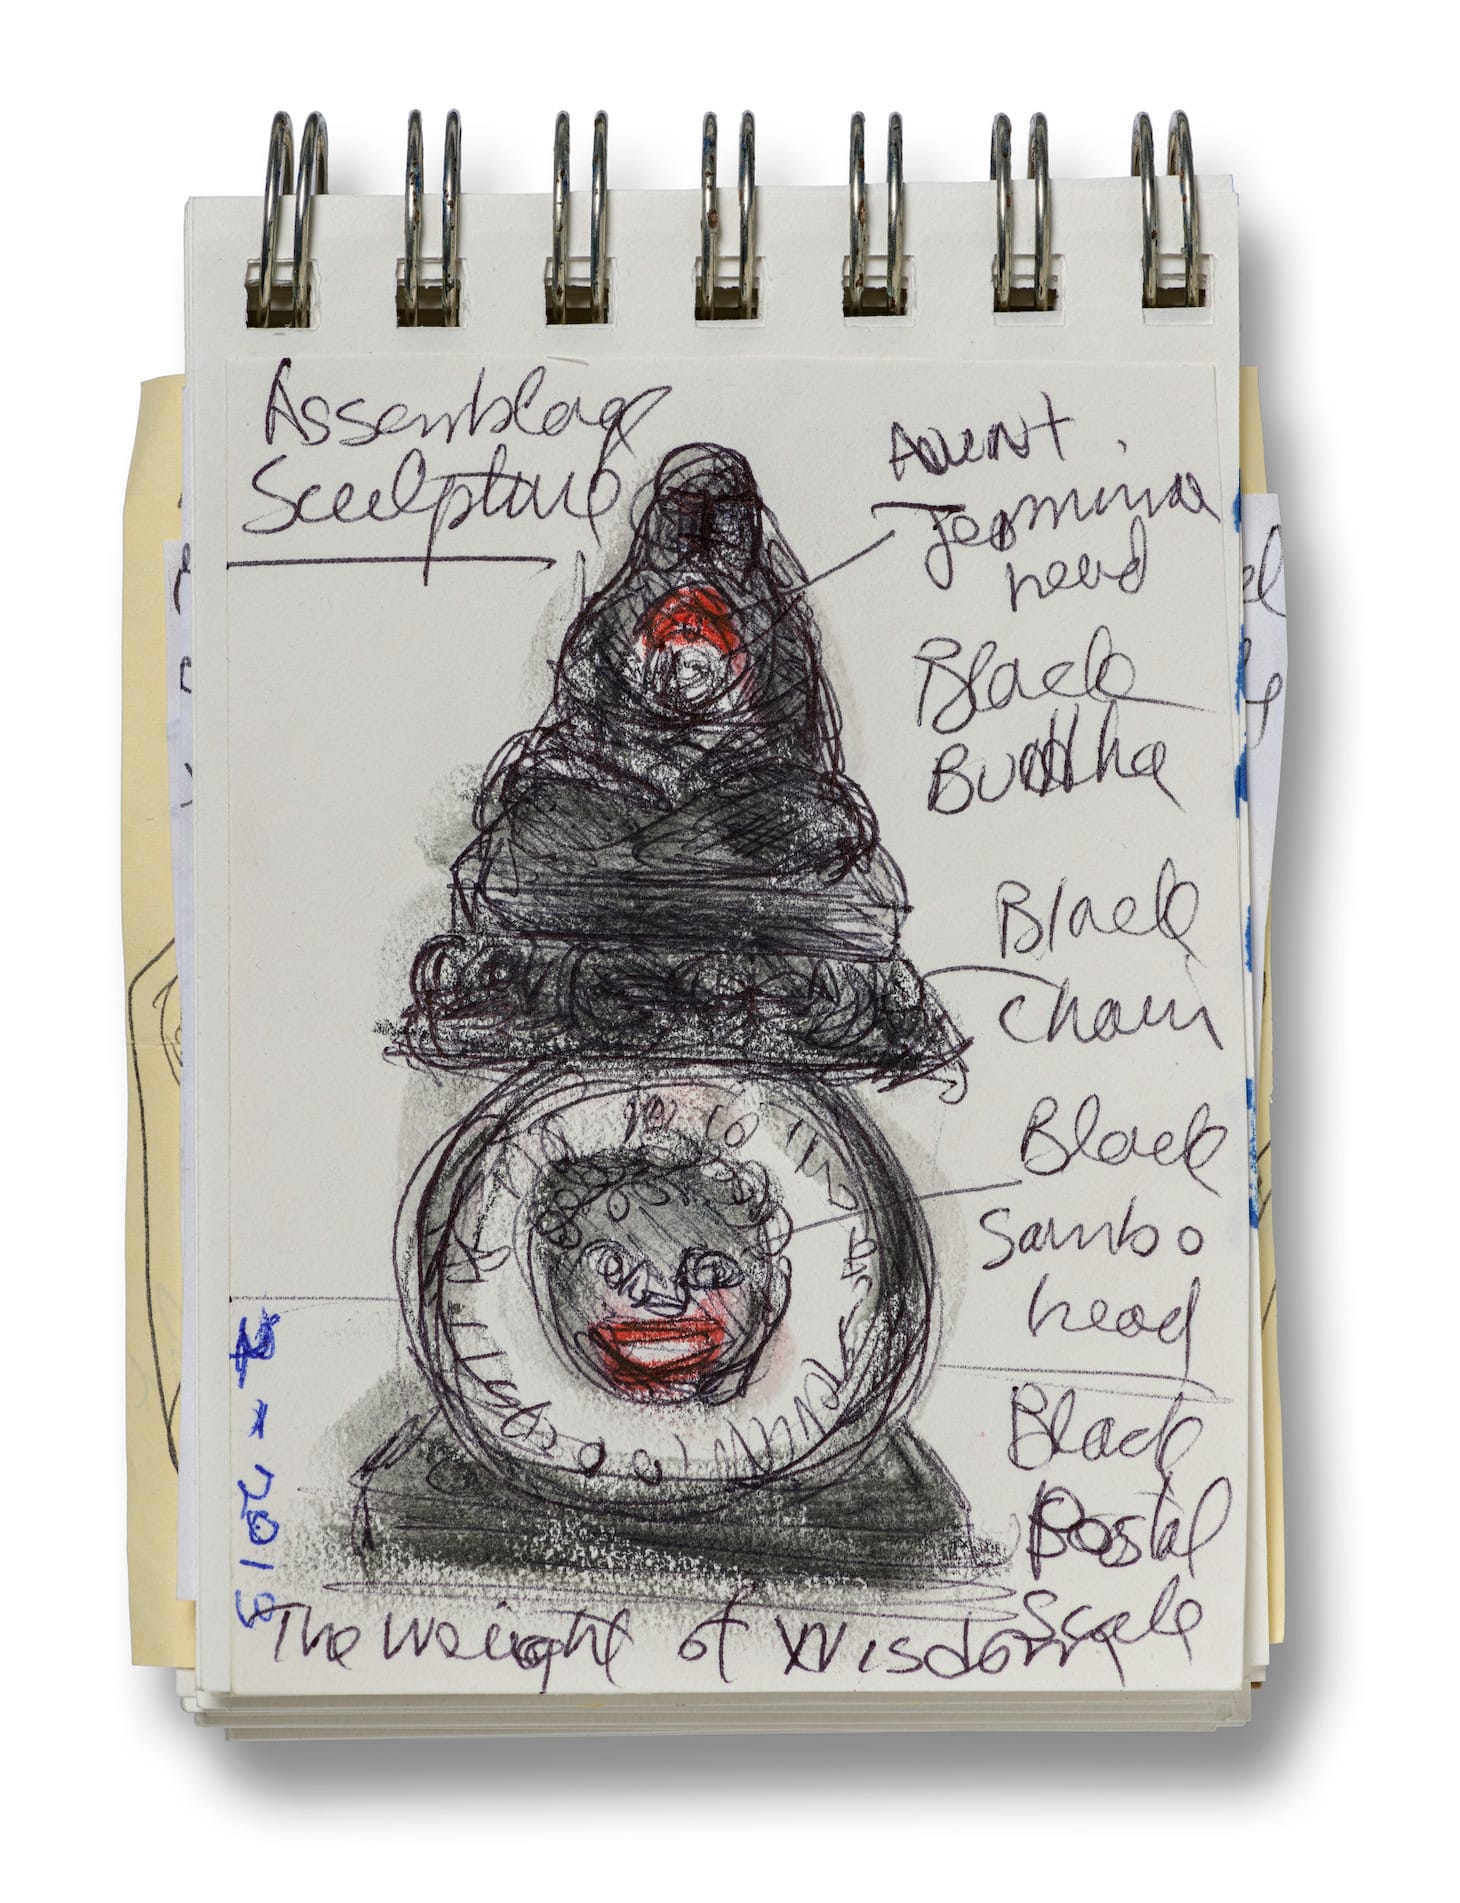 Assemblag
Sculpture
Aunt
Jemima
head
Black
Buddha
Black
Chain
Black
Sambo
head
Black
Postal
Scale
The Weight of Wisdom